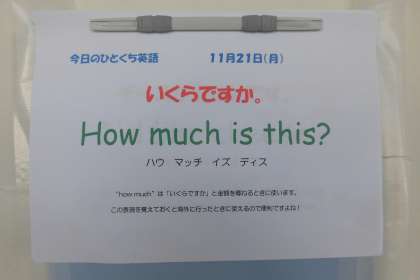 今日のひとくち英語 11月21日(月)
いくらですか。
How much is this?
ハウ マッチ イズ ディス
"how much" は「いくらですか」と金額を尋ねるときに使います。
この表現を覚えておくと海外に行ったときに使えるので便利ですよね!